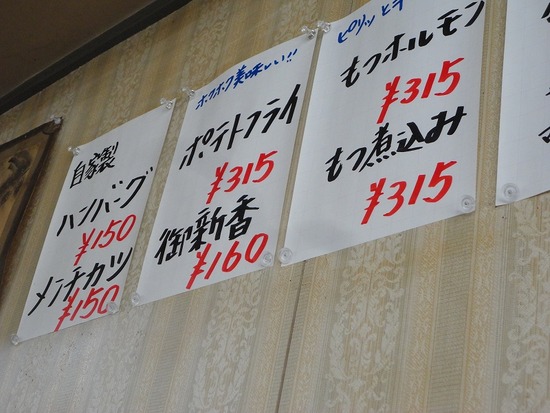 自家製
ハンバーグ
¥150
メンチカツ
¥150
ホクホク美味しい!!
ポテトフライ
¥315
御新香
¥160
ピリッとテ
もつホルモン
¥315
もつ煮込み
¥315